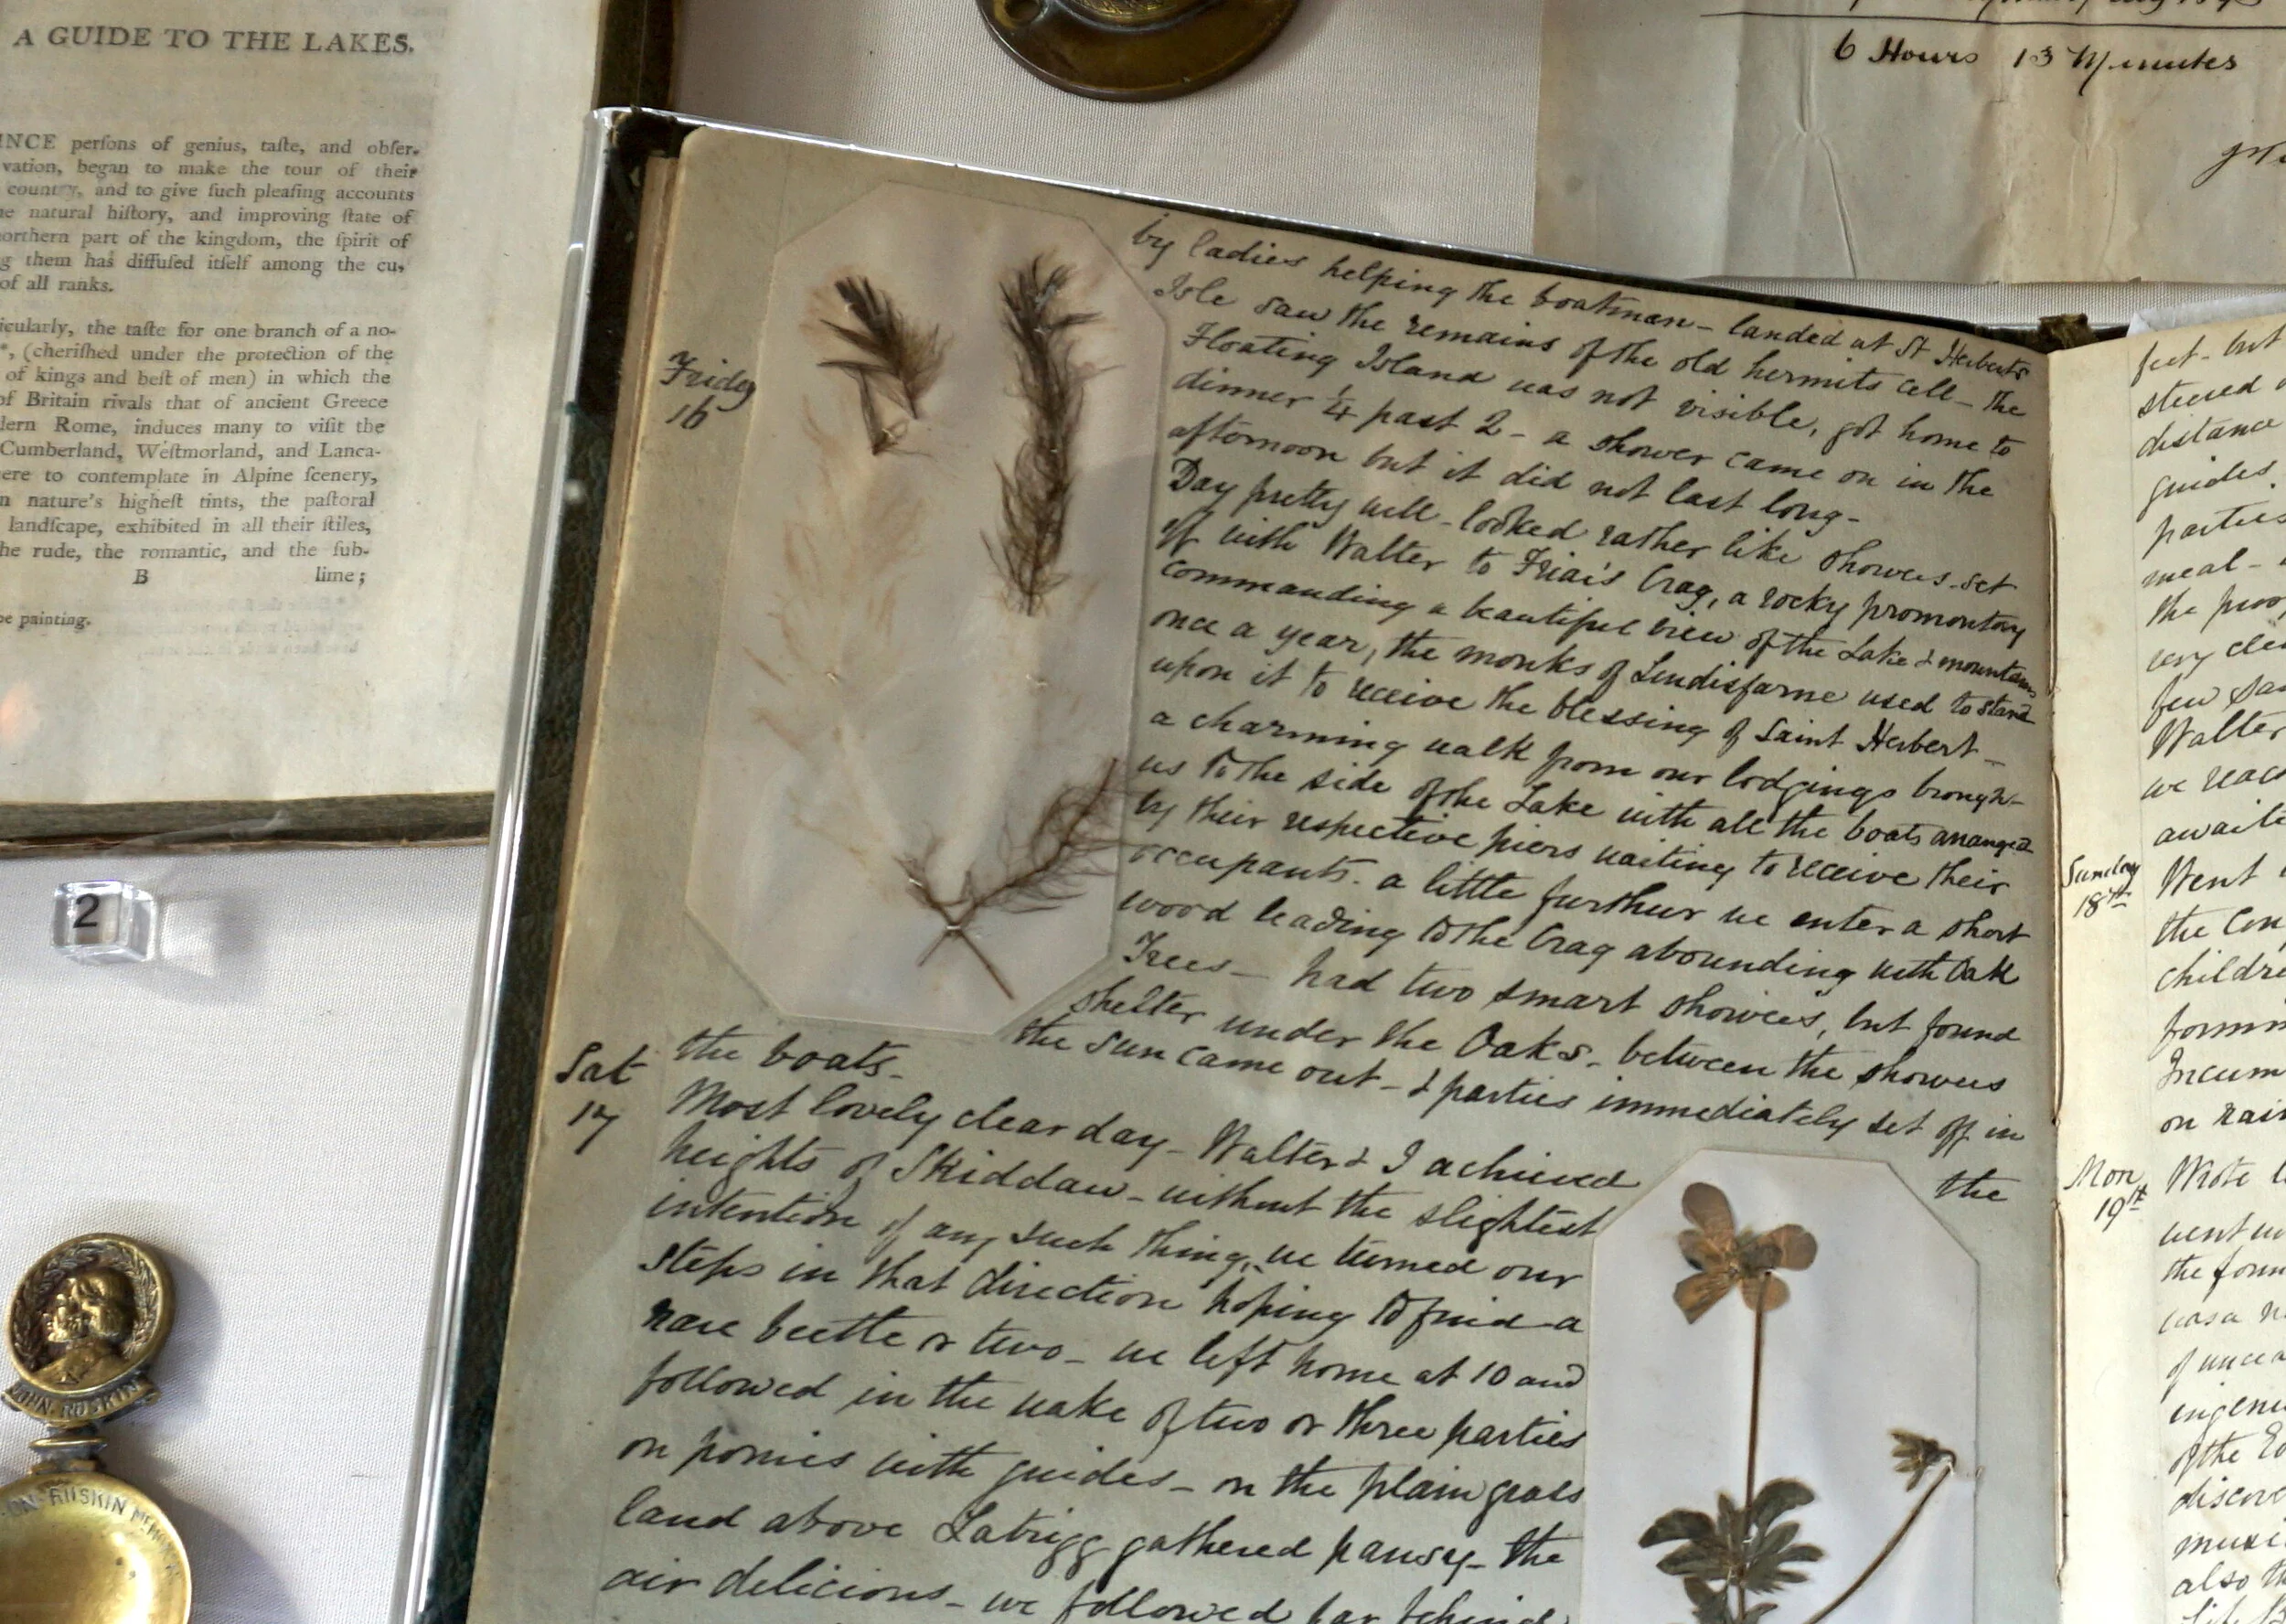 A GUIDE TO THE LAKES.
INCE perſons of genius, taſte, and obſer-
vation, began to make the tour of their
country, and to give ſuch pleaſing accounts
natural hiſtory, and improving ſtate of
northern part of the kingdom, the ſpirit of
them has diffuſed itſelf among the cu-
of all ranks.
icularly, the taſte for one branch of a no-
(cheriſhed under the protection of the
of kings and beſt of men) in which the
of Britain rivals that of ancient Greece
dern Rome, induces many to viſit the
Cumberland, Weſtmorland, and Lanca-
ere to contemplate in Alpine ſcenery,
n nature's higheſt tints, the paſtoral
landſcape, exhibited in all their ſtiles,
he rude, the romantic, and the ſub-
B lime;
pe painting.
6 Hours 13 Minutes
by ladies helping the boatman - landed at St Herberts
Isle saw the remains of the old hermits cell - the
Floating Island was not visible, got home to
dinner ¼ past 2 - a shower came on in the
afternoon but it did not last long -
Friday
16
Day pretty well - looked rather like showers - set
off with Walter to Friar's Crag, a rocky promontory
commanding a beautiful view of the Lake & mountains
once a year, the monks of Lindisfarne used to stand
upon it to receive the blessing of Saint Herbert -
a charming walk from our lodgings brought
us to the side of the Lake with all the boats arranged
by their respective piers waiting to receive their
occupants. a little further we enter a short
wood leading to the Crag abounding with Oak
Trees - had two smart showers, but found
shelter under the Oaks - between the showers
the sun came out - & parties immediately set off in
the boats -
Sat
17
Most lovely clear day - Walter & I achieved the
heights of Skiddaw - without the slightest
intention of any such thing, we turned our
steps in that direction hoping to find a
rare beetle or two - we left home at 10 and
followed in the wake of two or three parties
on ponies with guides - on the plain grass
land above Latrigg gathered pansy - the
air delicious - we followed far behind
feet - but
steered
distance
guides.
parties
meal -
the
very
few
Walter
we
Sunday
18th
Went
the
on
Mon
19th
Wrote
went
the
of
of the
also
2
JOHN·RUSKIN
RUSKIN